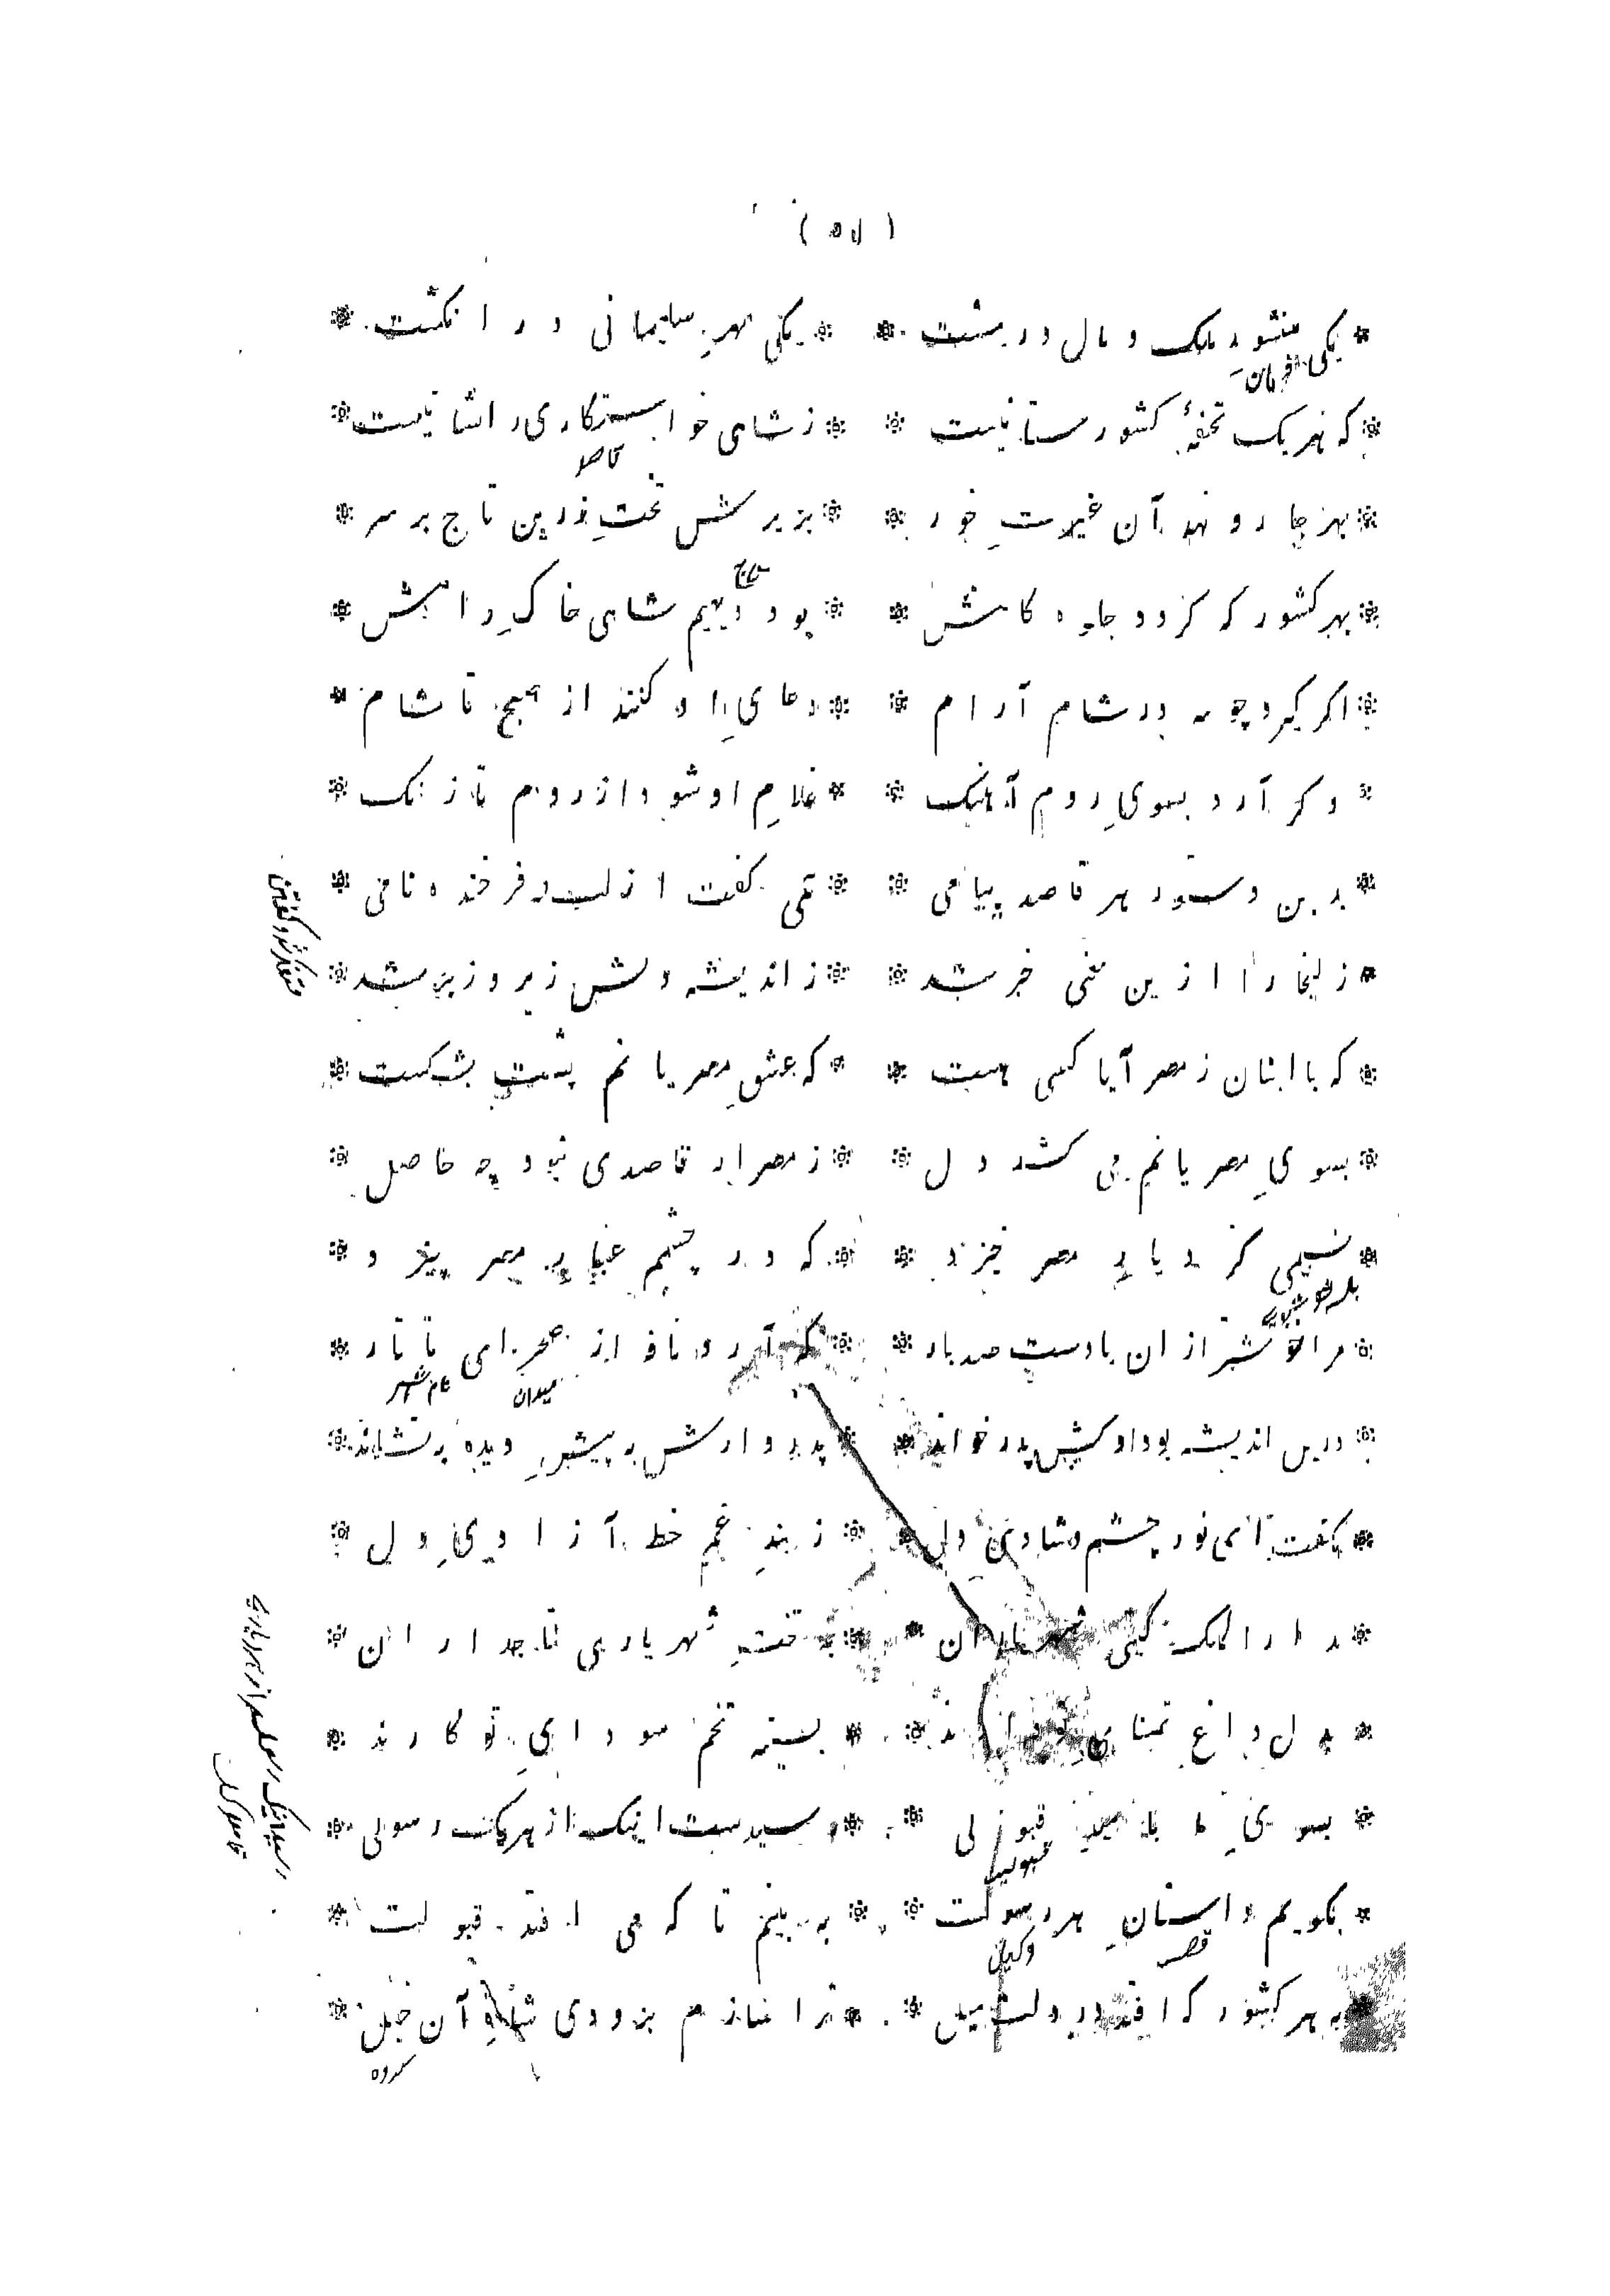 یکی منشور ملک و مال در مشت * یکی مهر سلیمانی در انگشت
فرمان
که هر یک تحفهٔ کشور ستانیست * ز شاهی خواستگاری را نشانیست
قاصد
بهر جا رو نهد آن غیرت خور * بزیرش تخت زرین تاج بر سر
تاج
بهر کشور که گردد جلوه گاهش * بود دیهیم شاهی خاک راهش
اگر گیرد چو مه در شام آرام * دعای او کنند از صبح تا شام
وگر آرد بسوی روم آهنگ * غلام او شود از روم تا زنگ
بدین دستور هر قاصد پیامی * همی گفت از لب فرخنده نامی
زلیخا را ازین معنی خبر شد * ز اندیشه دلش زیر و زبر شد
که با اینان ز مصر آیا کسی هست * که عشق مصریانم پشت بشکست
بسوی مصریانم می کشد دل * ز مصر ار قاصدی نبود چه حاصل
نسیمی کز دیار مصر خیزد * که در چشمم غبار مصر بیزد
مرا خوشتر از ان بادست صد بار * که آرد نافه از صحرای تاتار
میدان
نام شهر
درین اندیشه بود او کش پدر خواند * پدروارش به پیش دیده بنشاند
بگفت ای نور چشم و شادی دل * ز بند غم خط آزادی دل
بدار الملک گیتی شهریاران * به تخت شهریاری تاجداران
بدل داغ تمنای تو دارند * بسینه تخم سودای تو کارند
بسوی ما به امید قبولی * رسیدست اینک از هر یک رسولی
بگویم داستان هر رسولت * به بینم تا که می افتد قبولت
قصه
به هر کشور که افتد در دلت میل * ترا سازم بزودی شاه آن خیل
گروه